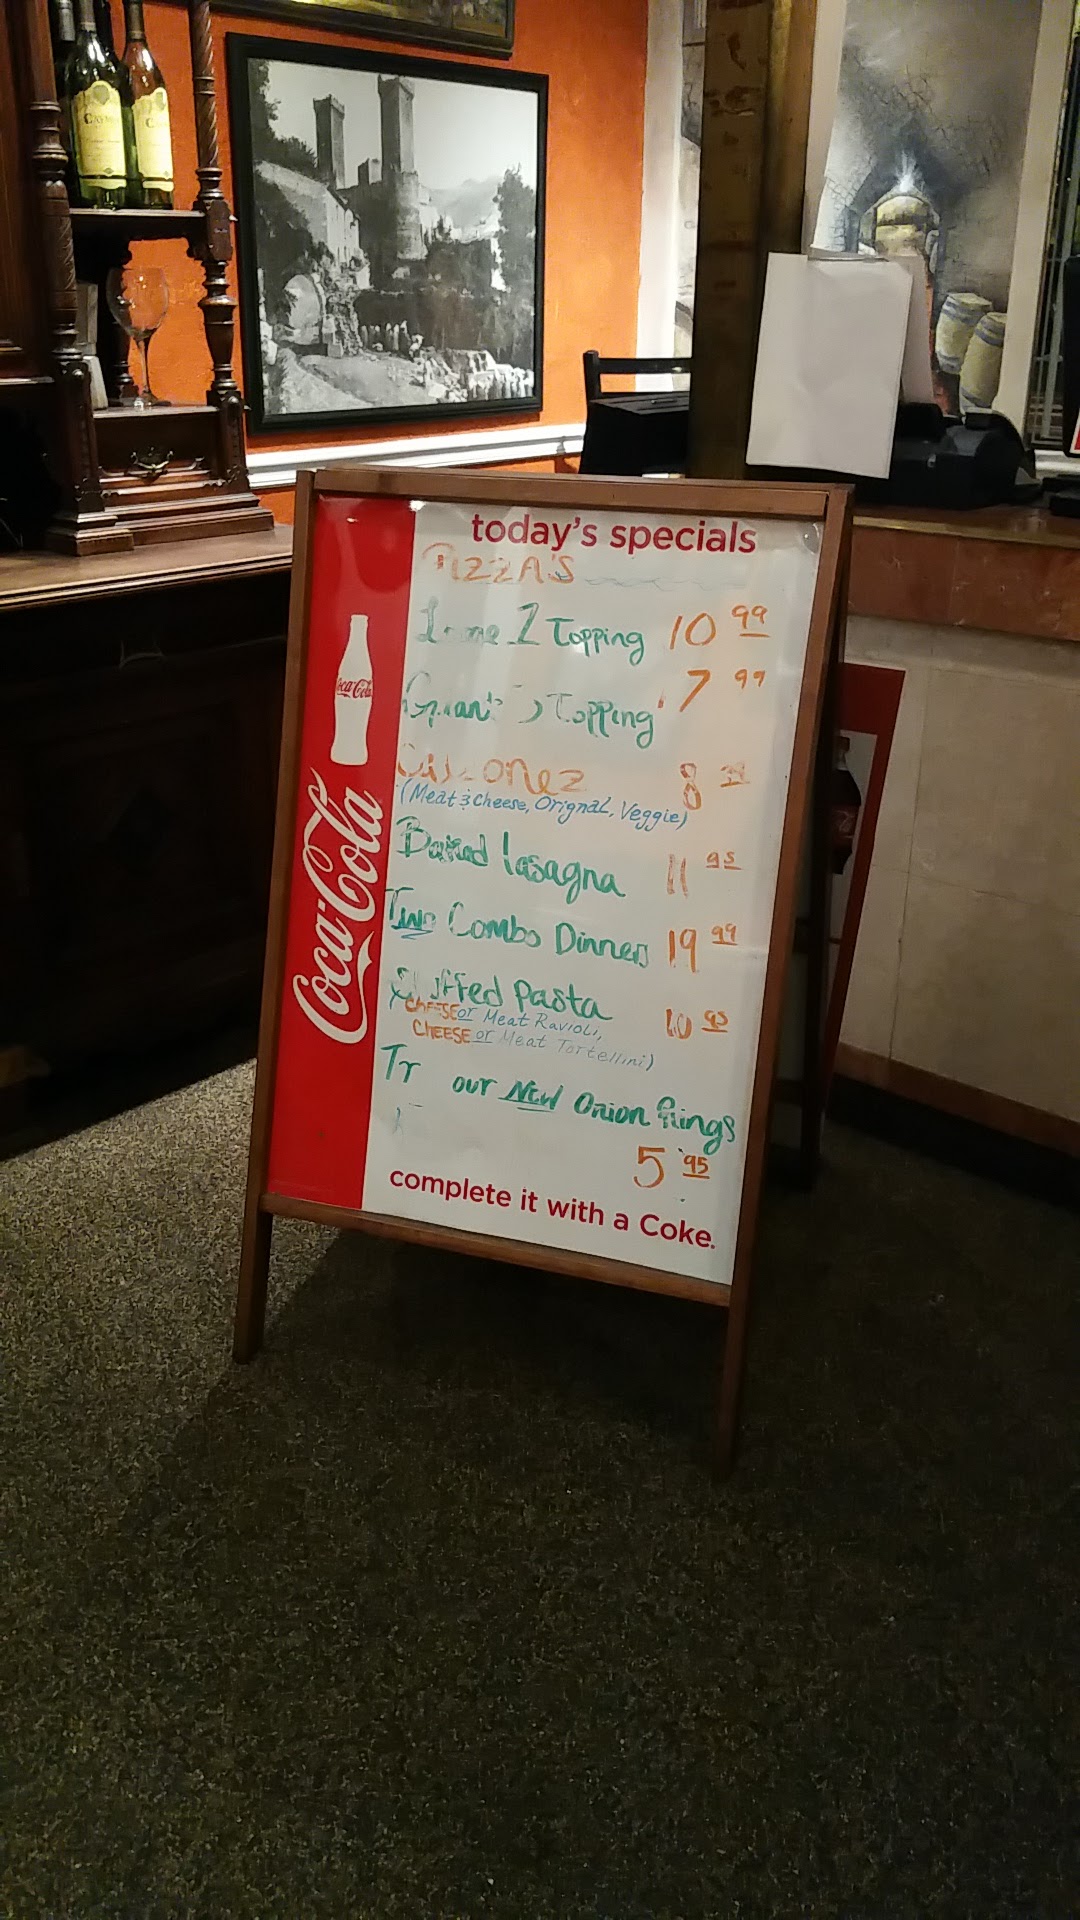 today's specials
PIZZA'S
1 Topping 10 99
Topping 7 99
8
(Meat & Cheese, Orignal, Veggie)
Baked lasagna 11 95
Two Combo Dinners 19 99
Stuffed Pasta 10 95
CHEESE or Meat Ravioli,
CHEESE or Meat Tortellini)
Tr our New Onion Rings
5 95
complete it with a Coke.
Coca-Cola
Coca-Cola